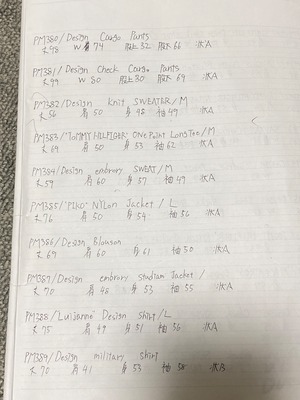 PM380/Design Cargo Pants
丈98 W 74 股上32 股下66 状A
PM381/Design Check Cargo Pants
丈99 W 80 股上30 股下69 状A
PM382/Design knit SWEATER/M
丈56 肩50 身48 袖49 状A
PM383/"TOMMY HILFIGER" ONE Point LongTee/M
丈69 肩50 身53 袖62 状A
PM384/Design embrory SWEAT/M
丈59 肩60 身57 袖49 状A
PM385/"PIKO" NYLon Jacket/L
丈76 肩50 身54 袖56 状A
PM386/Design Blouson
丈69 肩60 身61 袖50 状A
PM387/Design embrory Studium Jacket/
丈70 肩48 身53 袖55 状A
PM388/"Luijanne" Design Shirt/L
丈75 肩49 身51 袖56 状A
PM389/Design military Shirt
丈70 肩41 身53 袖58 状B